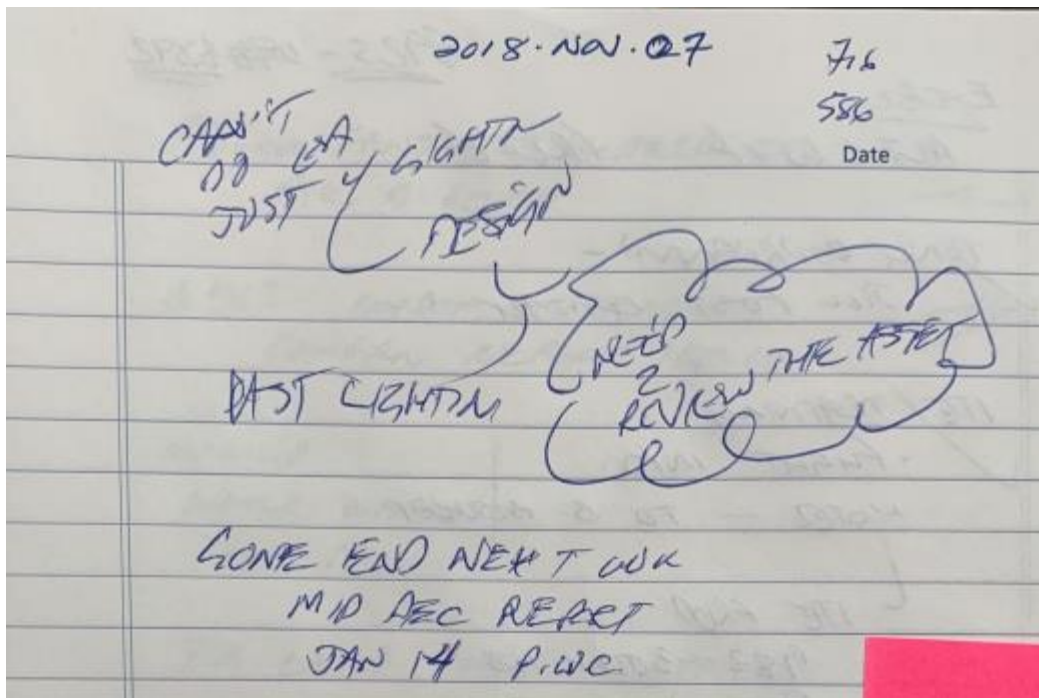 2018·NOV·27
716
586
Date
JUST
LIGHTN
DESIGN
PAST LIGHTIN
NEED
2
REVIEW THE
GONE END NEXT WK
MID DEC REPORT
JAN 14 P.WC